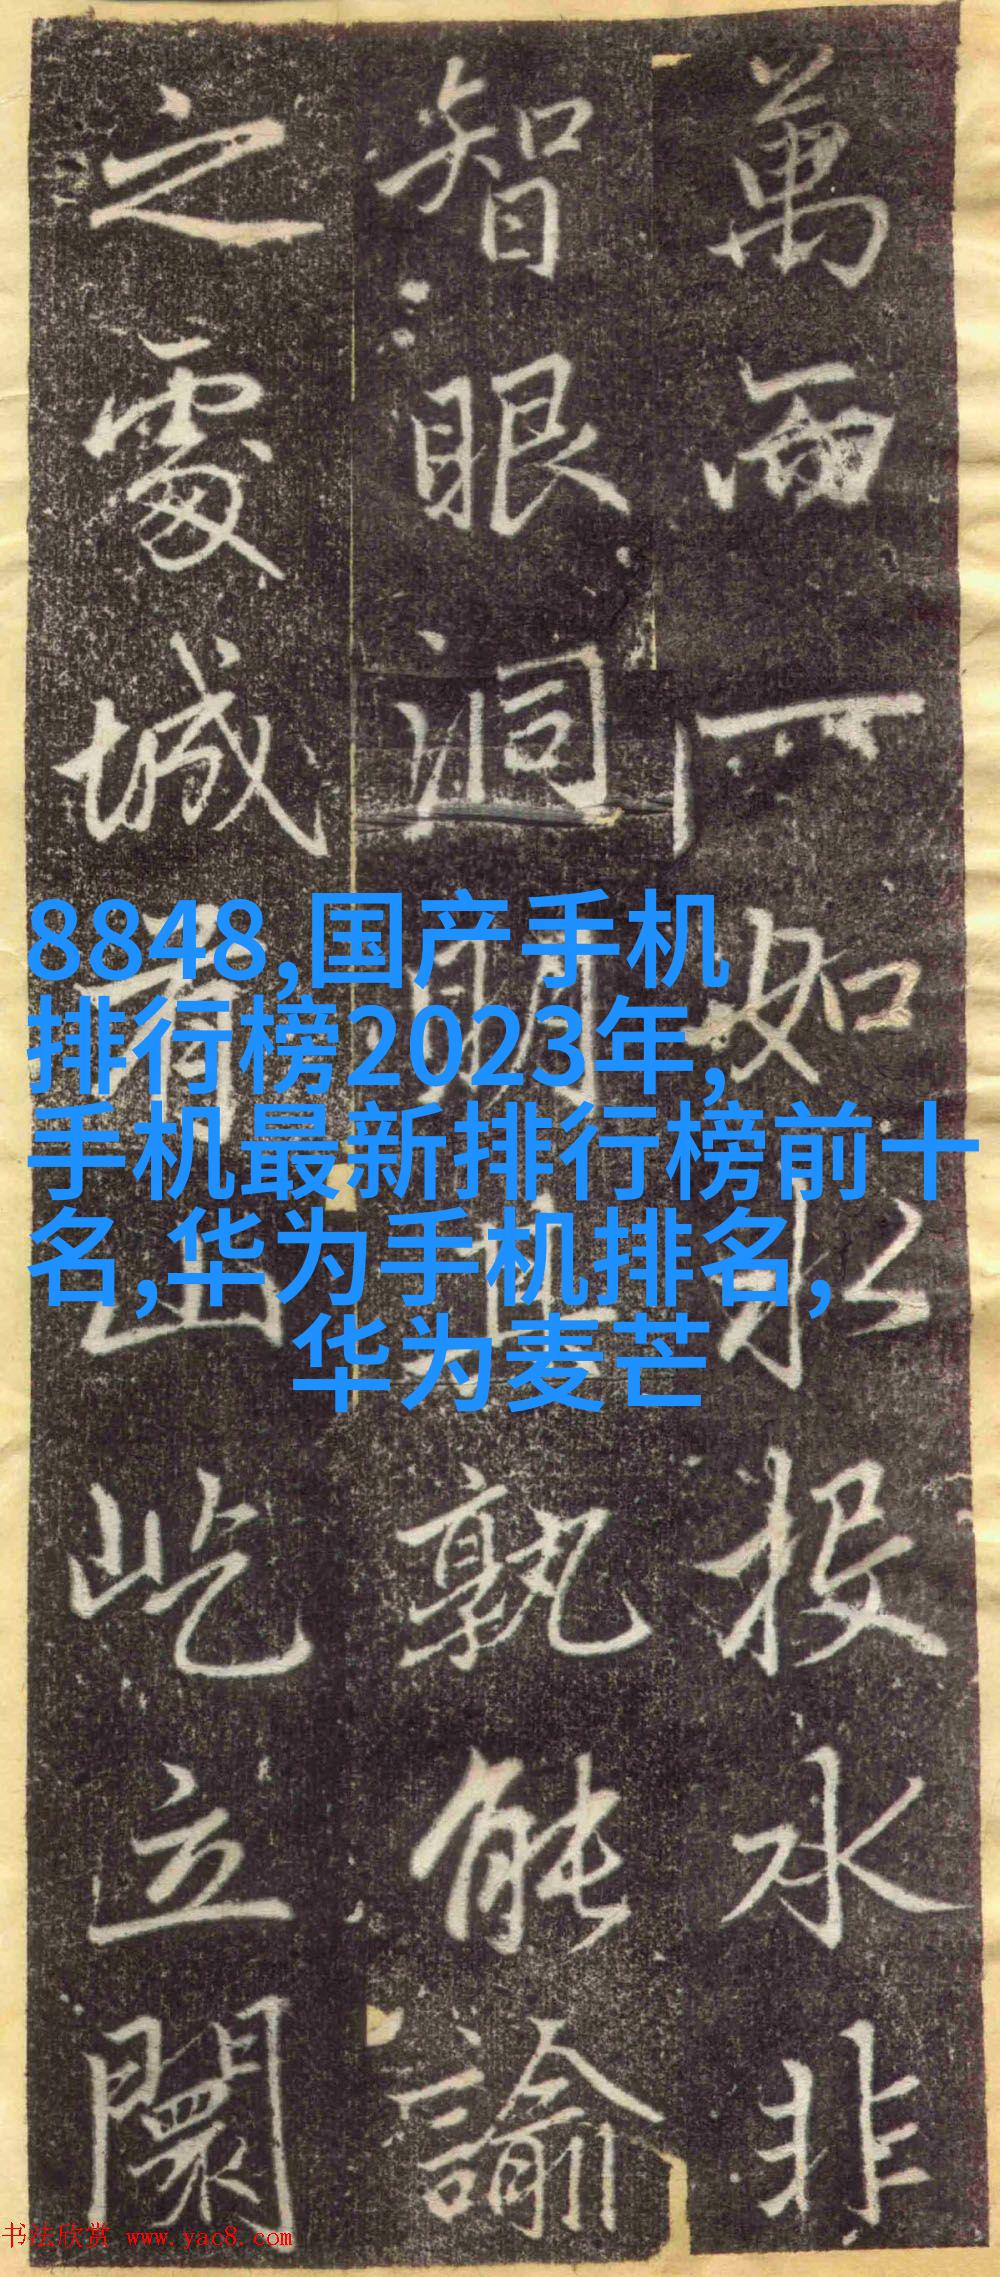 萬一如水投水非
智眼洞明孰能諭
之處城山屹立闤
8848,国产手机
排行榜2023年,
手机最新排行榜前十
名,华为手机排名,
华为麦芒
书法欣赏 www.yac8.com